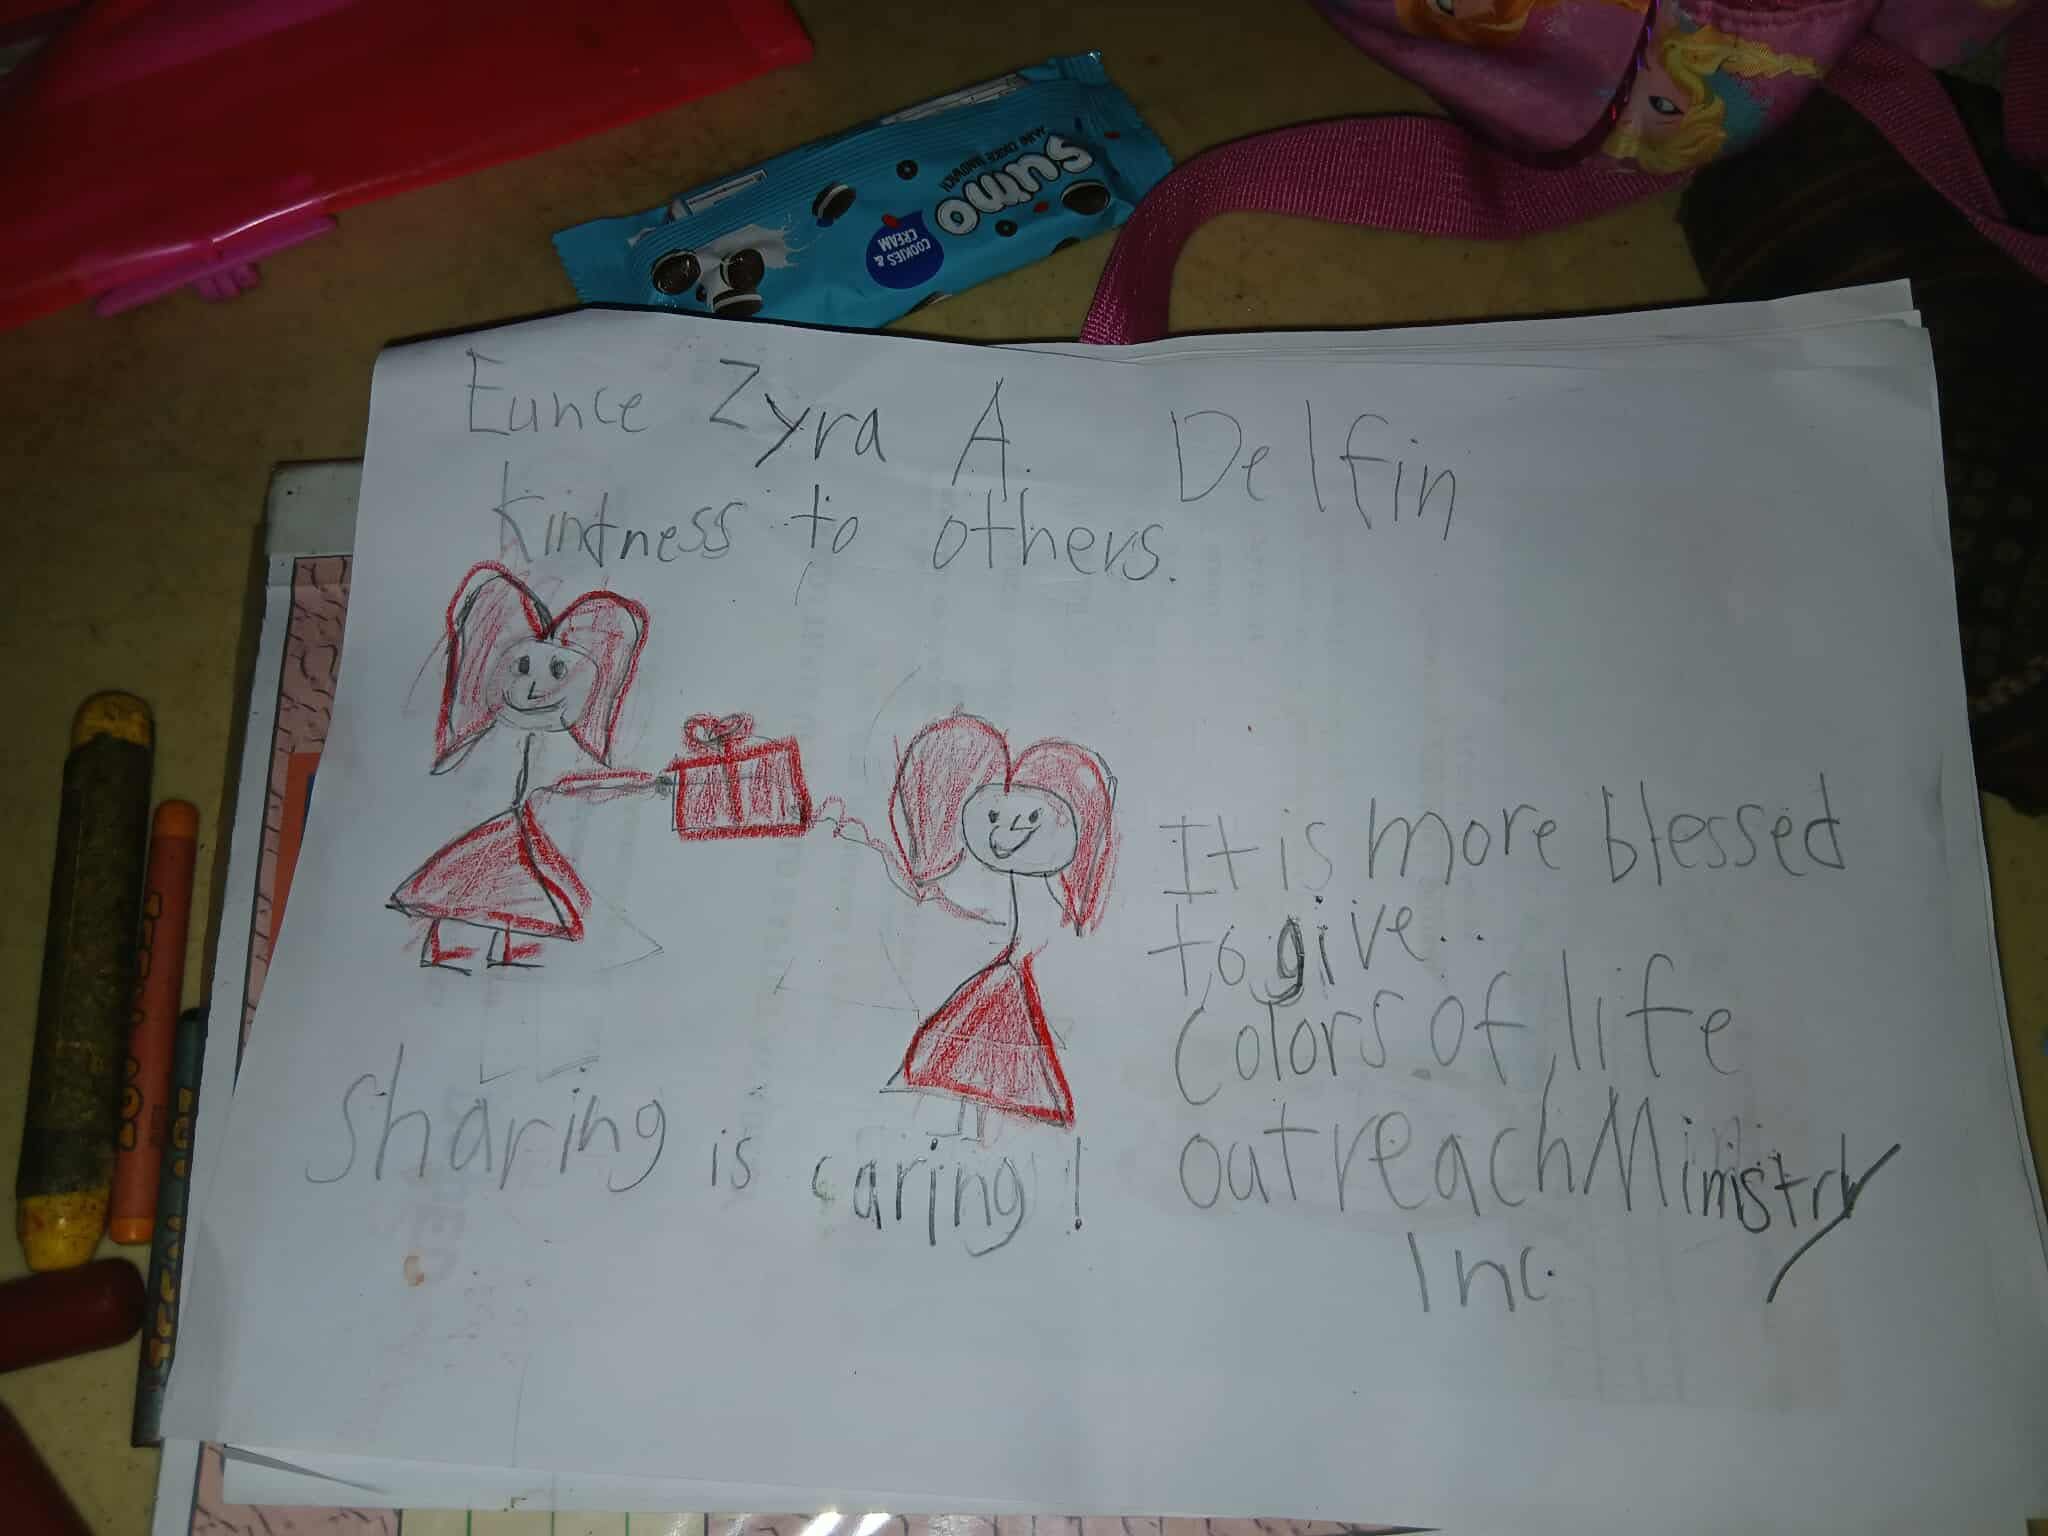 sumo
MINI COOKIE SANDWICH
COOKIES &
CREAM
Eunce Zyra A. Delfin
Kintness to others.
It is more blessed
to give..
Colors of life
outreach Ministry
Inc.
Sharing is caring!